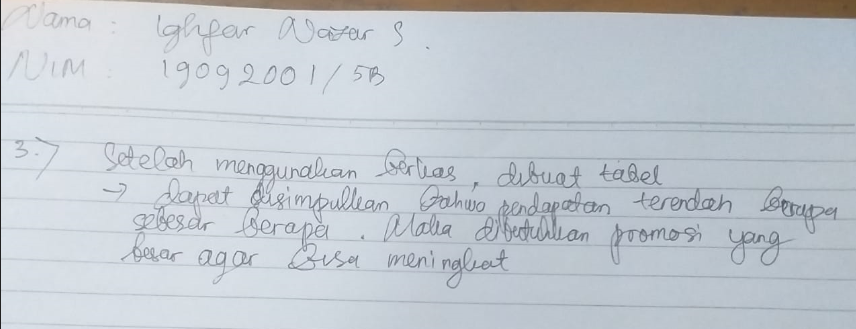 Nama : Ighfar Nazar S.
NIM : 19092001 / 5B
3.) Setelah menggunakan berkas, dibuat tabel
→ dapat disimpulkan bahwa pendapatan terendah berapa
sebesar berapa. Maka dibutuhkan promosi yang
besar agar bisa meningkat